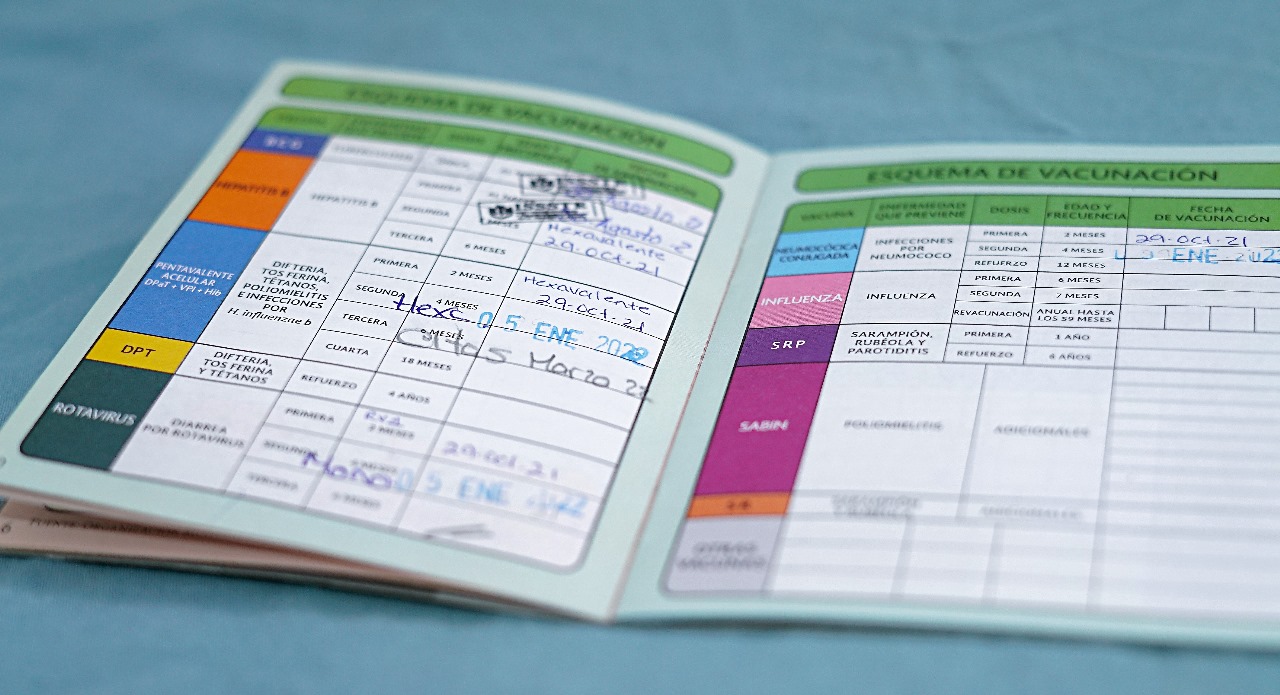 ESQUEMA DE VACUNACIÓN
BCG
HEPATITIS B
HEPATITIS B
PRIMERA
SEGUNDA
TERCERA
6 MESES
Agosto 2
Agosto 2
Hexavalente
29.Oct.21
PENTAVALENTE
ACELULAR
DPaT + VPI + Hib
DIFTERIA,
TOS FERINA,
TÉTANOS,
POLIOMIELITIS
E INFECCIONES
POR
H. influenzae b
PRIMERA
2 MESES
Hexavalente
29.Oct.21
SEGUNDA
4 MESES
Hexc
05 ENE 2022
TERCERA
6 MESES
5 Marzo 22
CUARTA
18 MESES
DPT
DIFTERIA,
TOS FERINA
Y TÉTANOS
REFUERZO
4 AÑOS
ROTAVIRUS
DIARREA
POR ROTAVIRUS
PRIMERA
2 MESES
29.Oct.21
SEGUNDA
05 ENE 2022
TERCERA
ESQUEMA DE VACUNACIÓN
VACUNA
ENFERMEDAD
QUE PREVIENE
DOSIS
EDAD Y
FRECUENCIA
FECHA
DE VACUNACIÓN
NEUMOCÓCICA
CONJUGADA
INFECCIONES
POR
NEUMOCOCO
PRIMERA
2 MESES
29.Oct.21
SEGUNDA
4 MESES
05 ENE 2022
REFUERZO
12 MESES
INFLUENZA
INFLUENZA
PRIMERA
6 MESES
SEGUNDA
7 MESES
REVACUNACIÓN
ANUAL HASTA
LOS 59 MESES
SRP
SARAMPIÓN,
RUBÉOLA Y
PAROTIDITIS
PRIMERA
1 AÑO
REFUERZO
6 AÑOS
SABIN
POLIOMIELITIS
ADICIONALES
SR
ADICIONALES